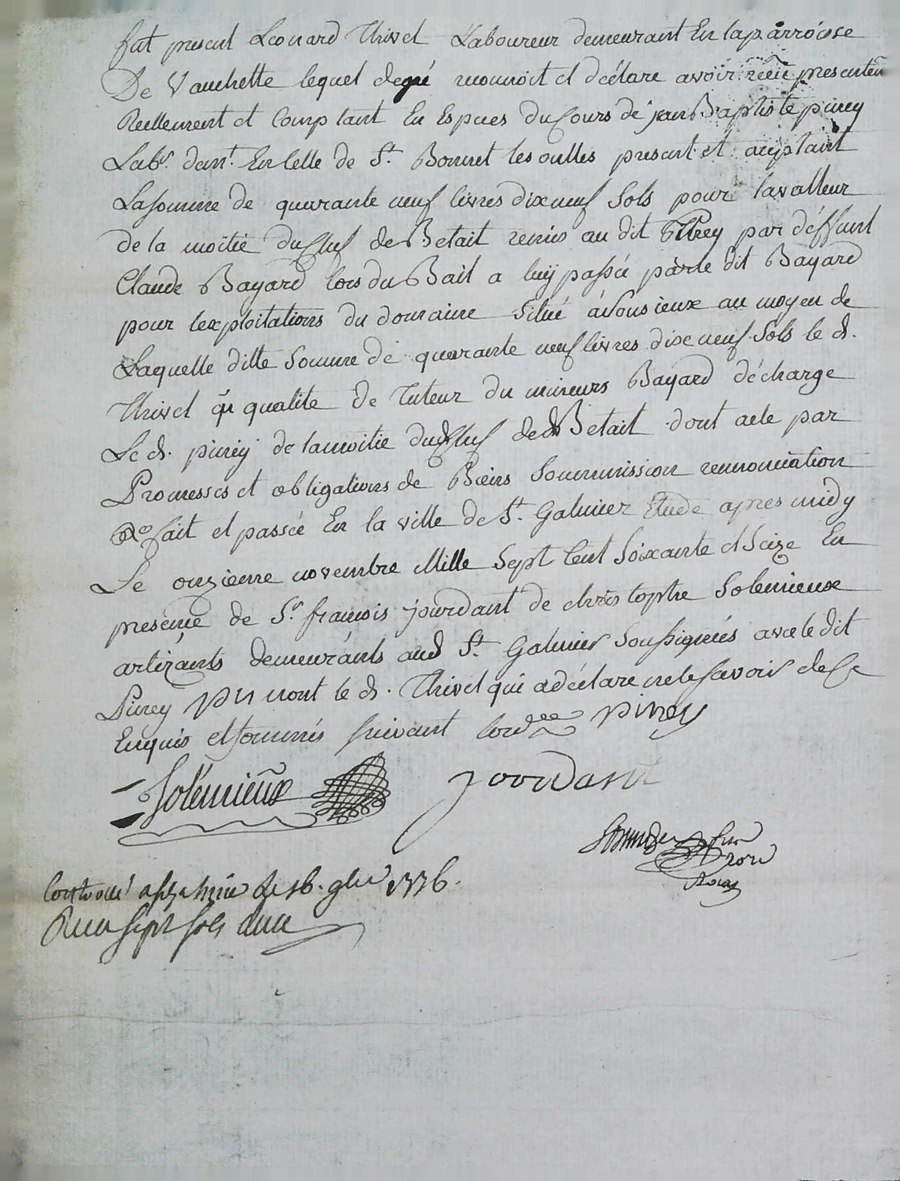 fut present Leonard Thivel Laboureur demeurant En la parroisse
De Vauchette lequel de gré reconnoit et déclare avoir reçu presentem
Reellement et Comptant En Espces du Cours de jean Baptiste pirey
Labr. demt. En Celle de St. Bonnet les oulles present et acceptant
La somme de quarante neuf livres dixneuf Sols pour la valleur
de la moitié du Chef de Betail remis au dit Pirey par déffunt
Claude Bayard lors du Bail a luy passée par le dit Bayard
pour lexploitations du domaine Situé à Vousieux au moyen de
Laquelle ditte Somme de quarante neuf livres dixneuf Sols le d.
Thivel qualite De Tuteur du mineurs Bayard décharge
Le d. pirey de lamoitie du Chef de Betail dont acte par
Promesses et obligations de Biens Soummission rennonciation
fait et passée En la ville de St. Galmier Etude apres midy
Le onzienne novembre Mille Sept Cent Soixante et Seize En
presence de Sr. françois jourdant de christophe Solemieux
artizants demeurants aud St. Galmier Soussignés avec le dit
Pirey non le d. Thivel qui a déclaré ne le savoir de ce
Enquis et sommés suivant lordee pirey
Solémieux jourdant
1776.
Reçu sept sols